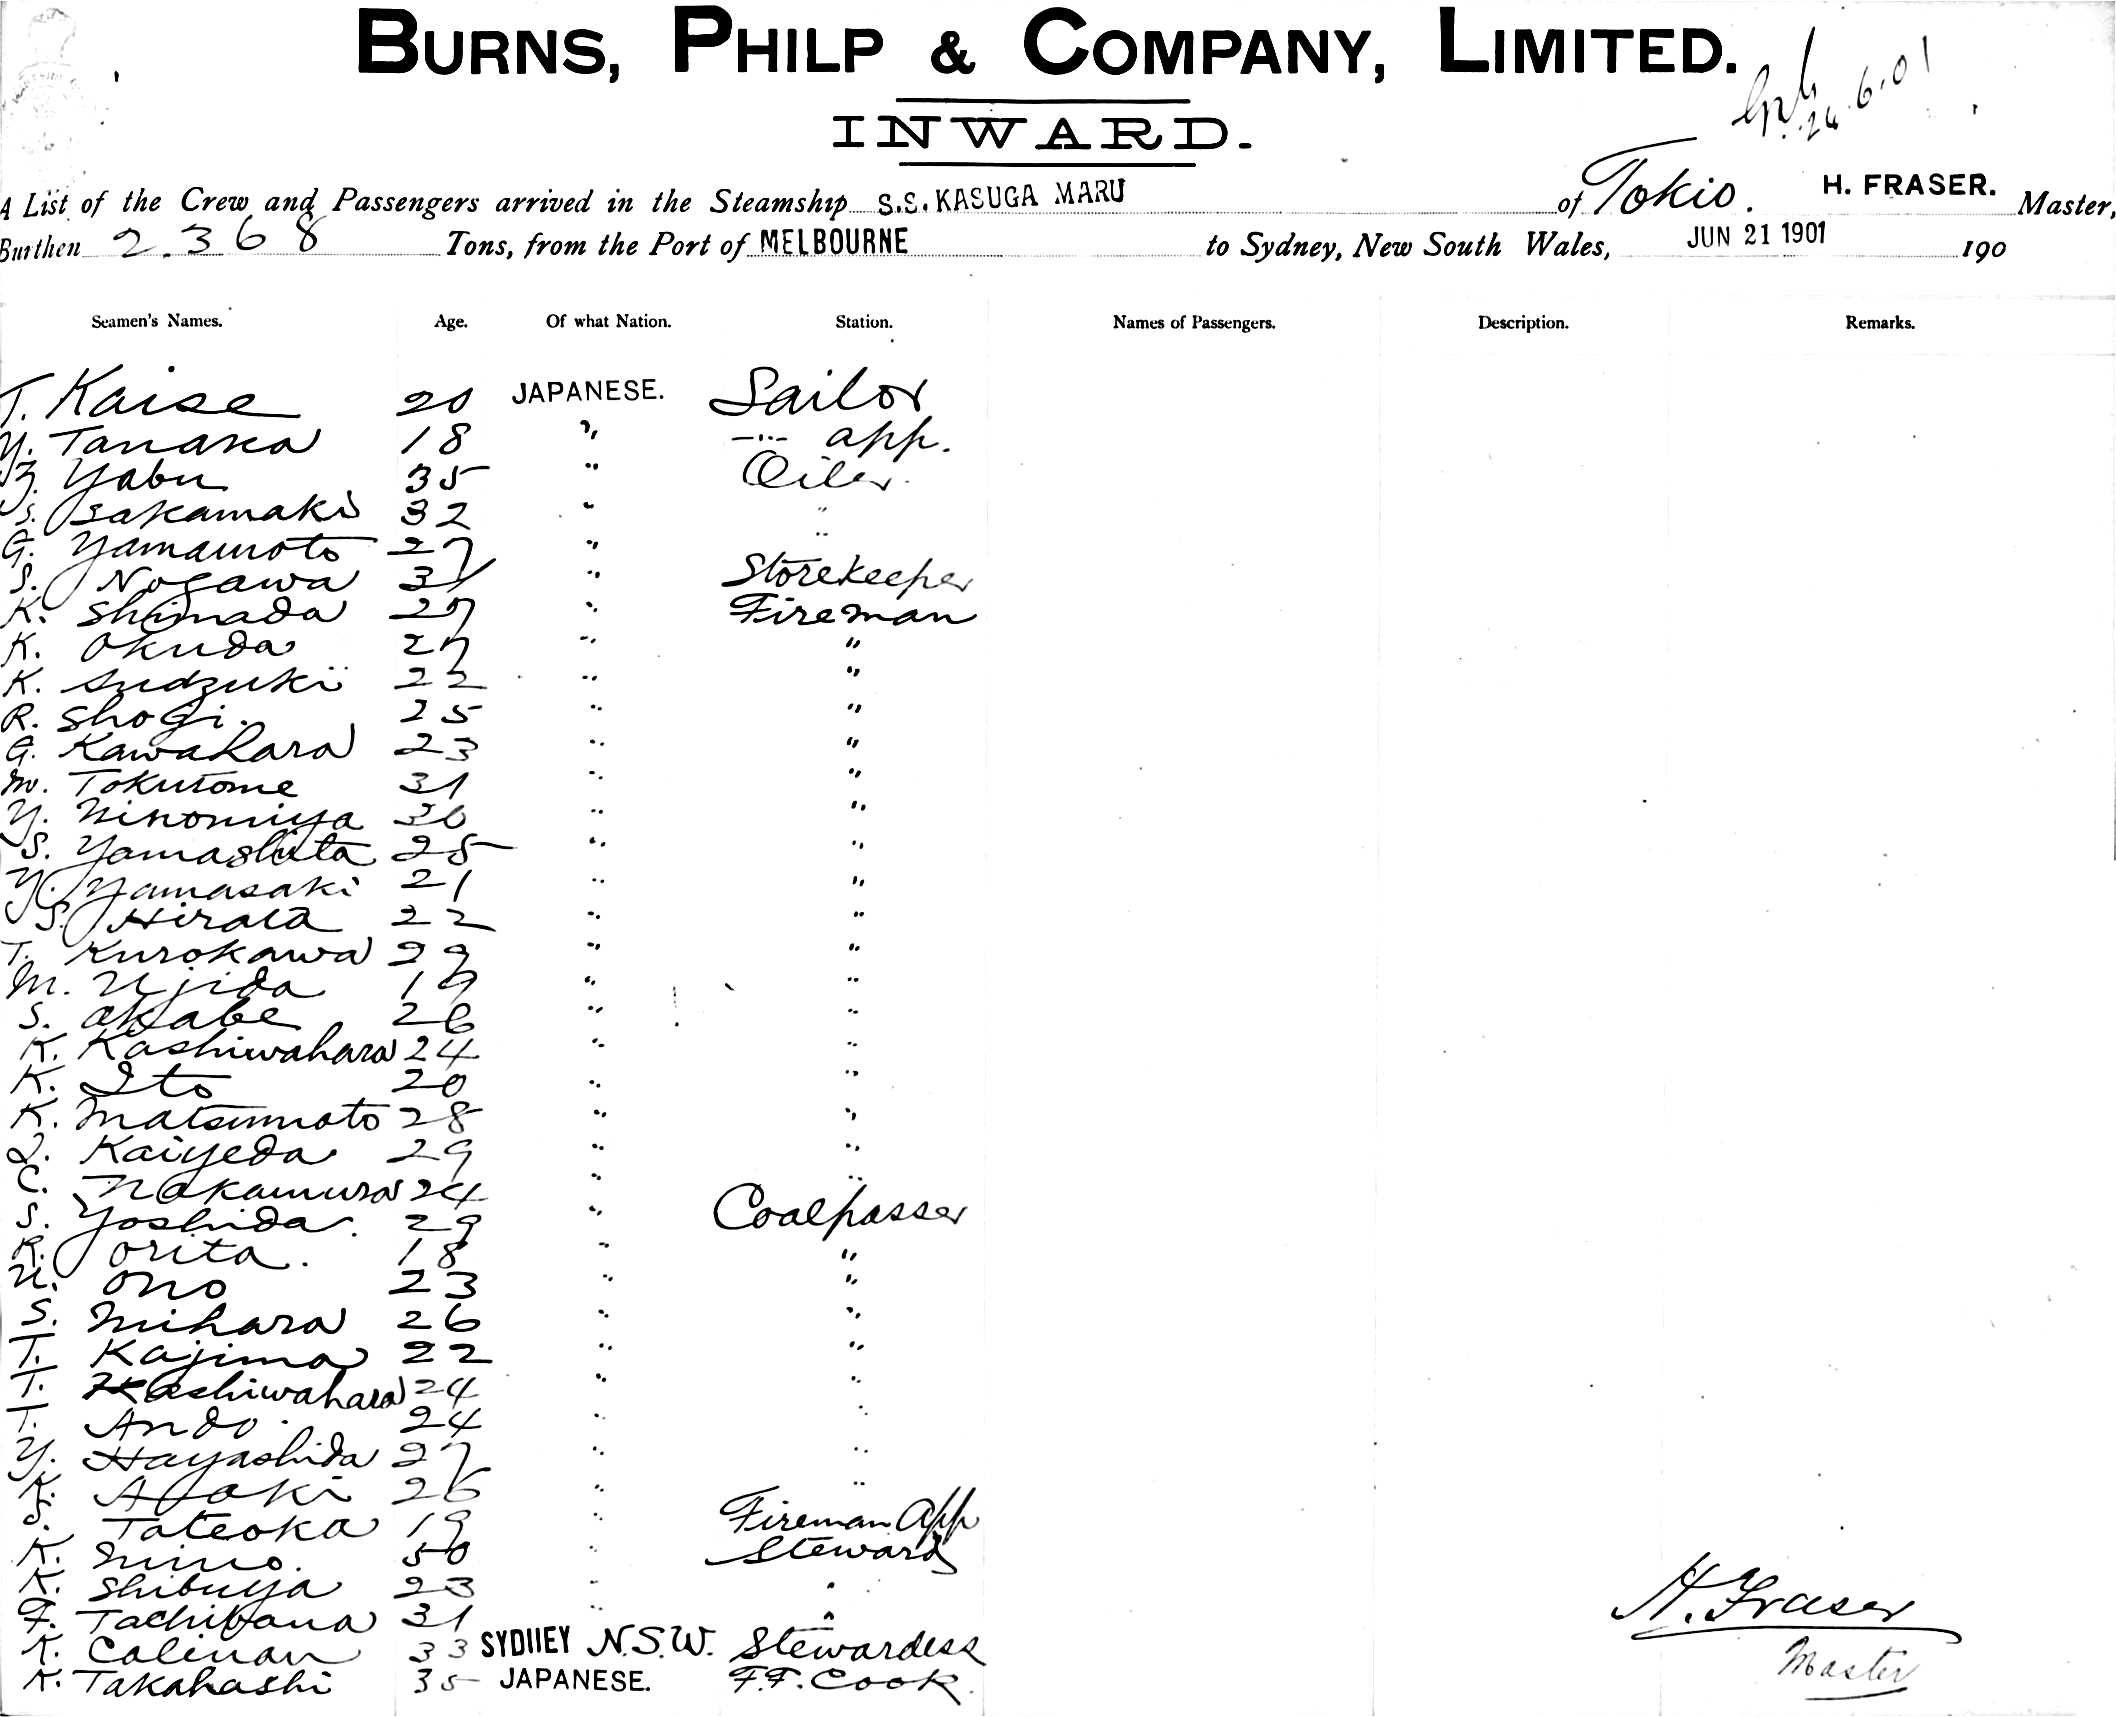 BURNS, PHILP & COMPANY, LIMITED.
24.6.01
INWARD.
A List of the Crew and Passengers arrived in the Steamship S.S. KASUGA MARU of Tokio. H. FRASER. Master,
Burthen 2.368 Tons, from the Port of MELBOURNE to Sydney, New South Wales, JUN 21 1901 190
Seamen's Names. Age. Of what Nation. Station. Names of Passengers. Description. Remarks.
T. Kaise 20 JAPANESE. Sailor
Y. Tanaka 18 " -"- app.
Z. Yabu 35 " Oiler.
S. Sakamaki 32 " "
G. Yamamoto 27 " "
S. Nogawa 31 " Storekeeper
K. Shimada 27 " Fireman
K. Okuda 27 " "
K. Sudzuki 22 " "
R. Shogi. 25 " "
G. Kawahara 23 " "
M. Tokutome 31 " "
Y. Ninomiya 30 " "
S. Yamashita 25 " "
Y. Yamasaki 21 " "
S. Hirata 22 " "
T. Kurokawa 29 " "
M. Ujida 19 " "
S. Akabe 26 " "
K. Kashiwahara 24 " "
K. Ito 20 " "
K. Matsumoto 28 " "
Kaiyeda 29 " "
C. Nakamura 24 " "
S. Yoshida. 29 " Coalpasser
R. Orita. 18 " "
U. Ono 23 " "
S. Mihara 26 " "
T. Kajima 22 " "
T. Kashiwahara 24 " "
T. Ando. 24 " "
Y. Hayashida 27 " "
K. 26 " "
S. Tateoka 19 " Fireman App
K. 50 " Steward
K. Shibuya 23 " "
F. Tachibana 31 " "
K. Calinan 33 SYDNEY N.S.W. Stewardess
K. Takahashi 35 JAPANESE. F.F. Cook.
H. Fraser
Master